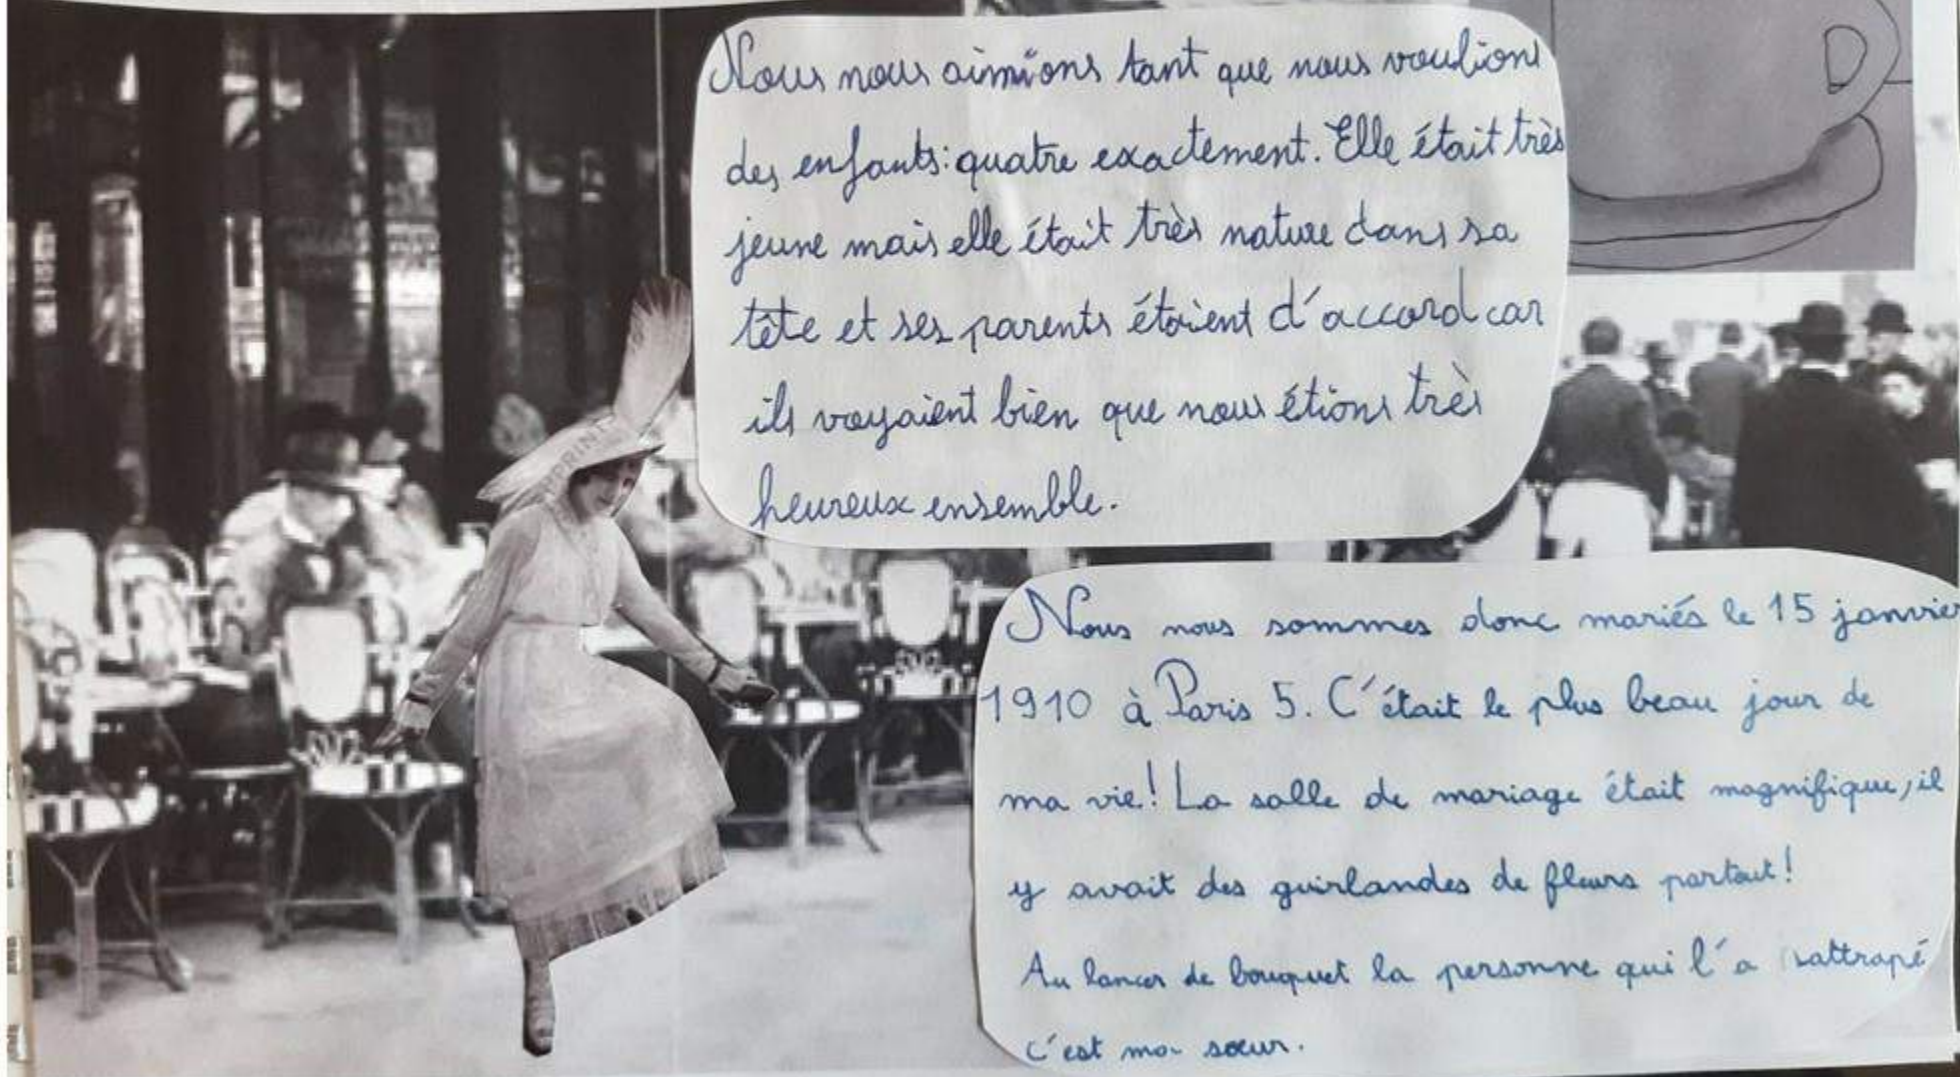 Nous nous aimions tant que nous voulions
des enfants: quatre exactement. Elle était très
jeune mais elle était très nature dans sa
tête et ses parents étaient d'accord car
ils voyaient bien que nous étions très
heureux ensemble.
Nous nous sommes donc mariés le 15 janvier
1910 à Paris 5. C'était le plus beau jour de
ma vie! La salle de mariage était magnifique, il
y avait des guirlandes de fleurs partout!
Au lancer de bouquet la personne qui l'a rattrapé
c'est ma sœur.